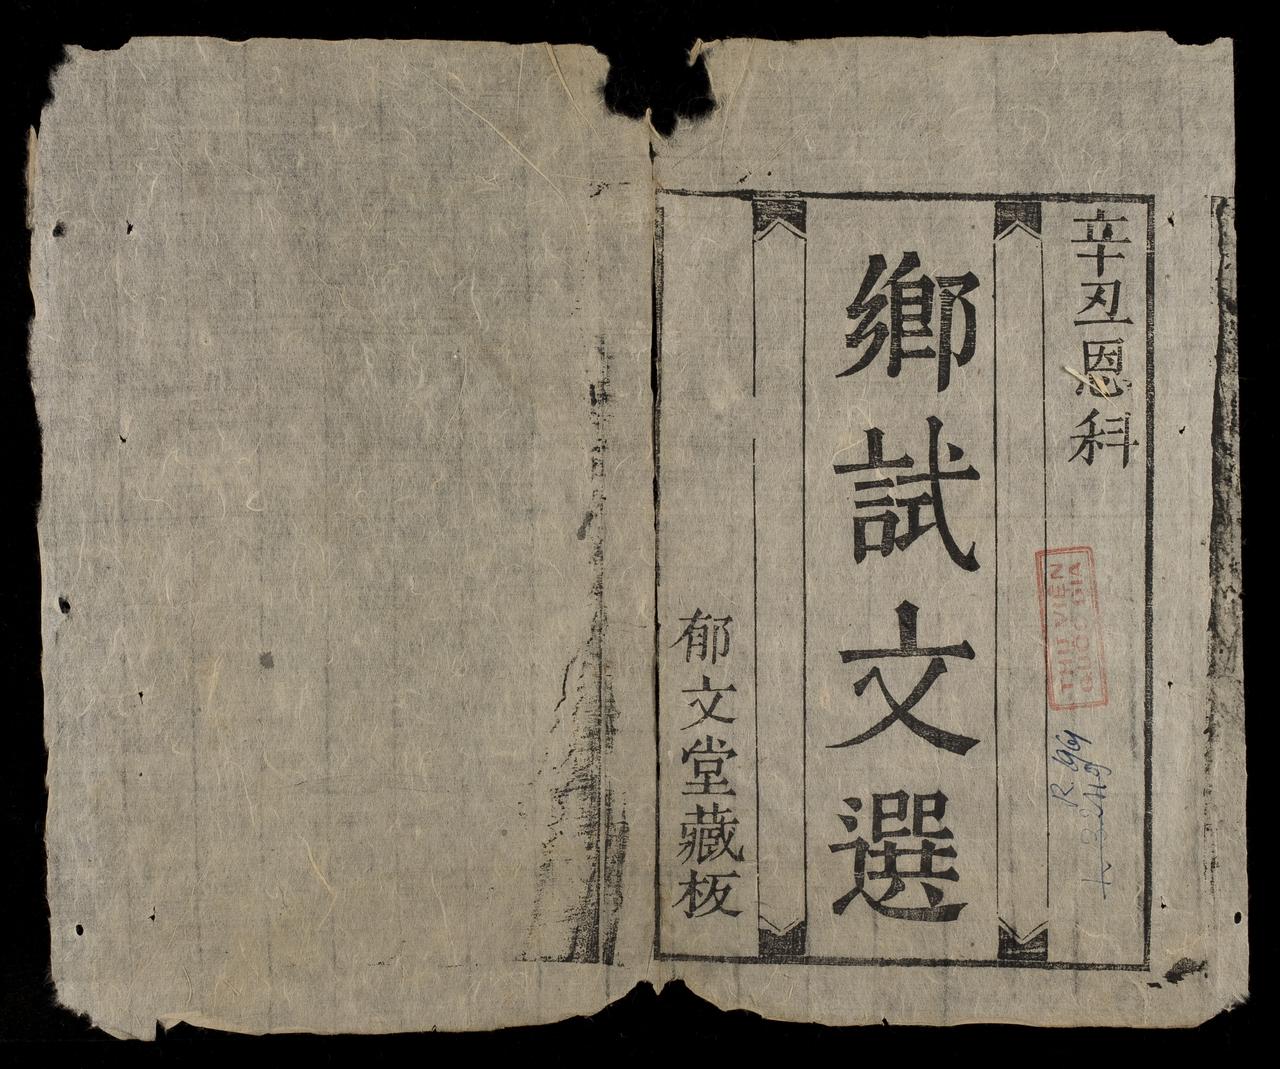 辛丑恩科
鄉試文選
郁文堂藏板
THƯ VIỆN
QUỐC GIA
R. 969